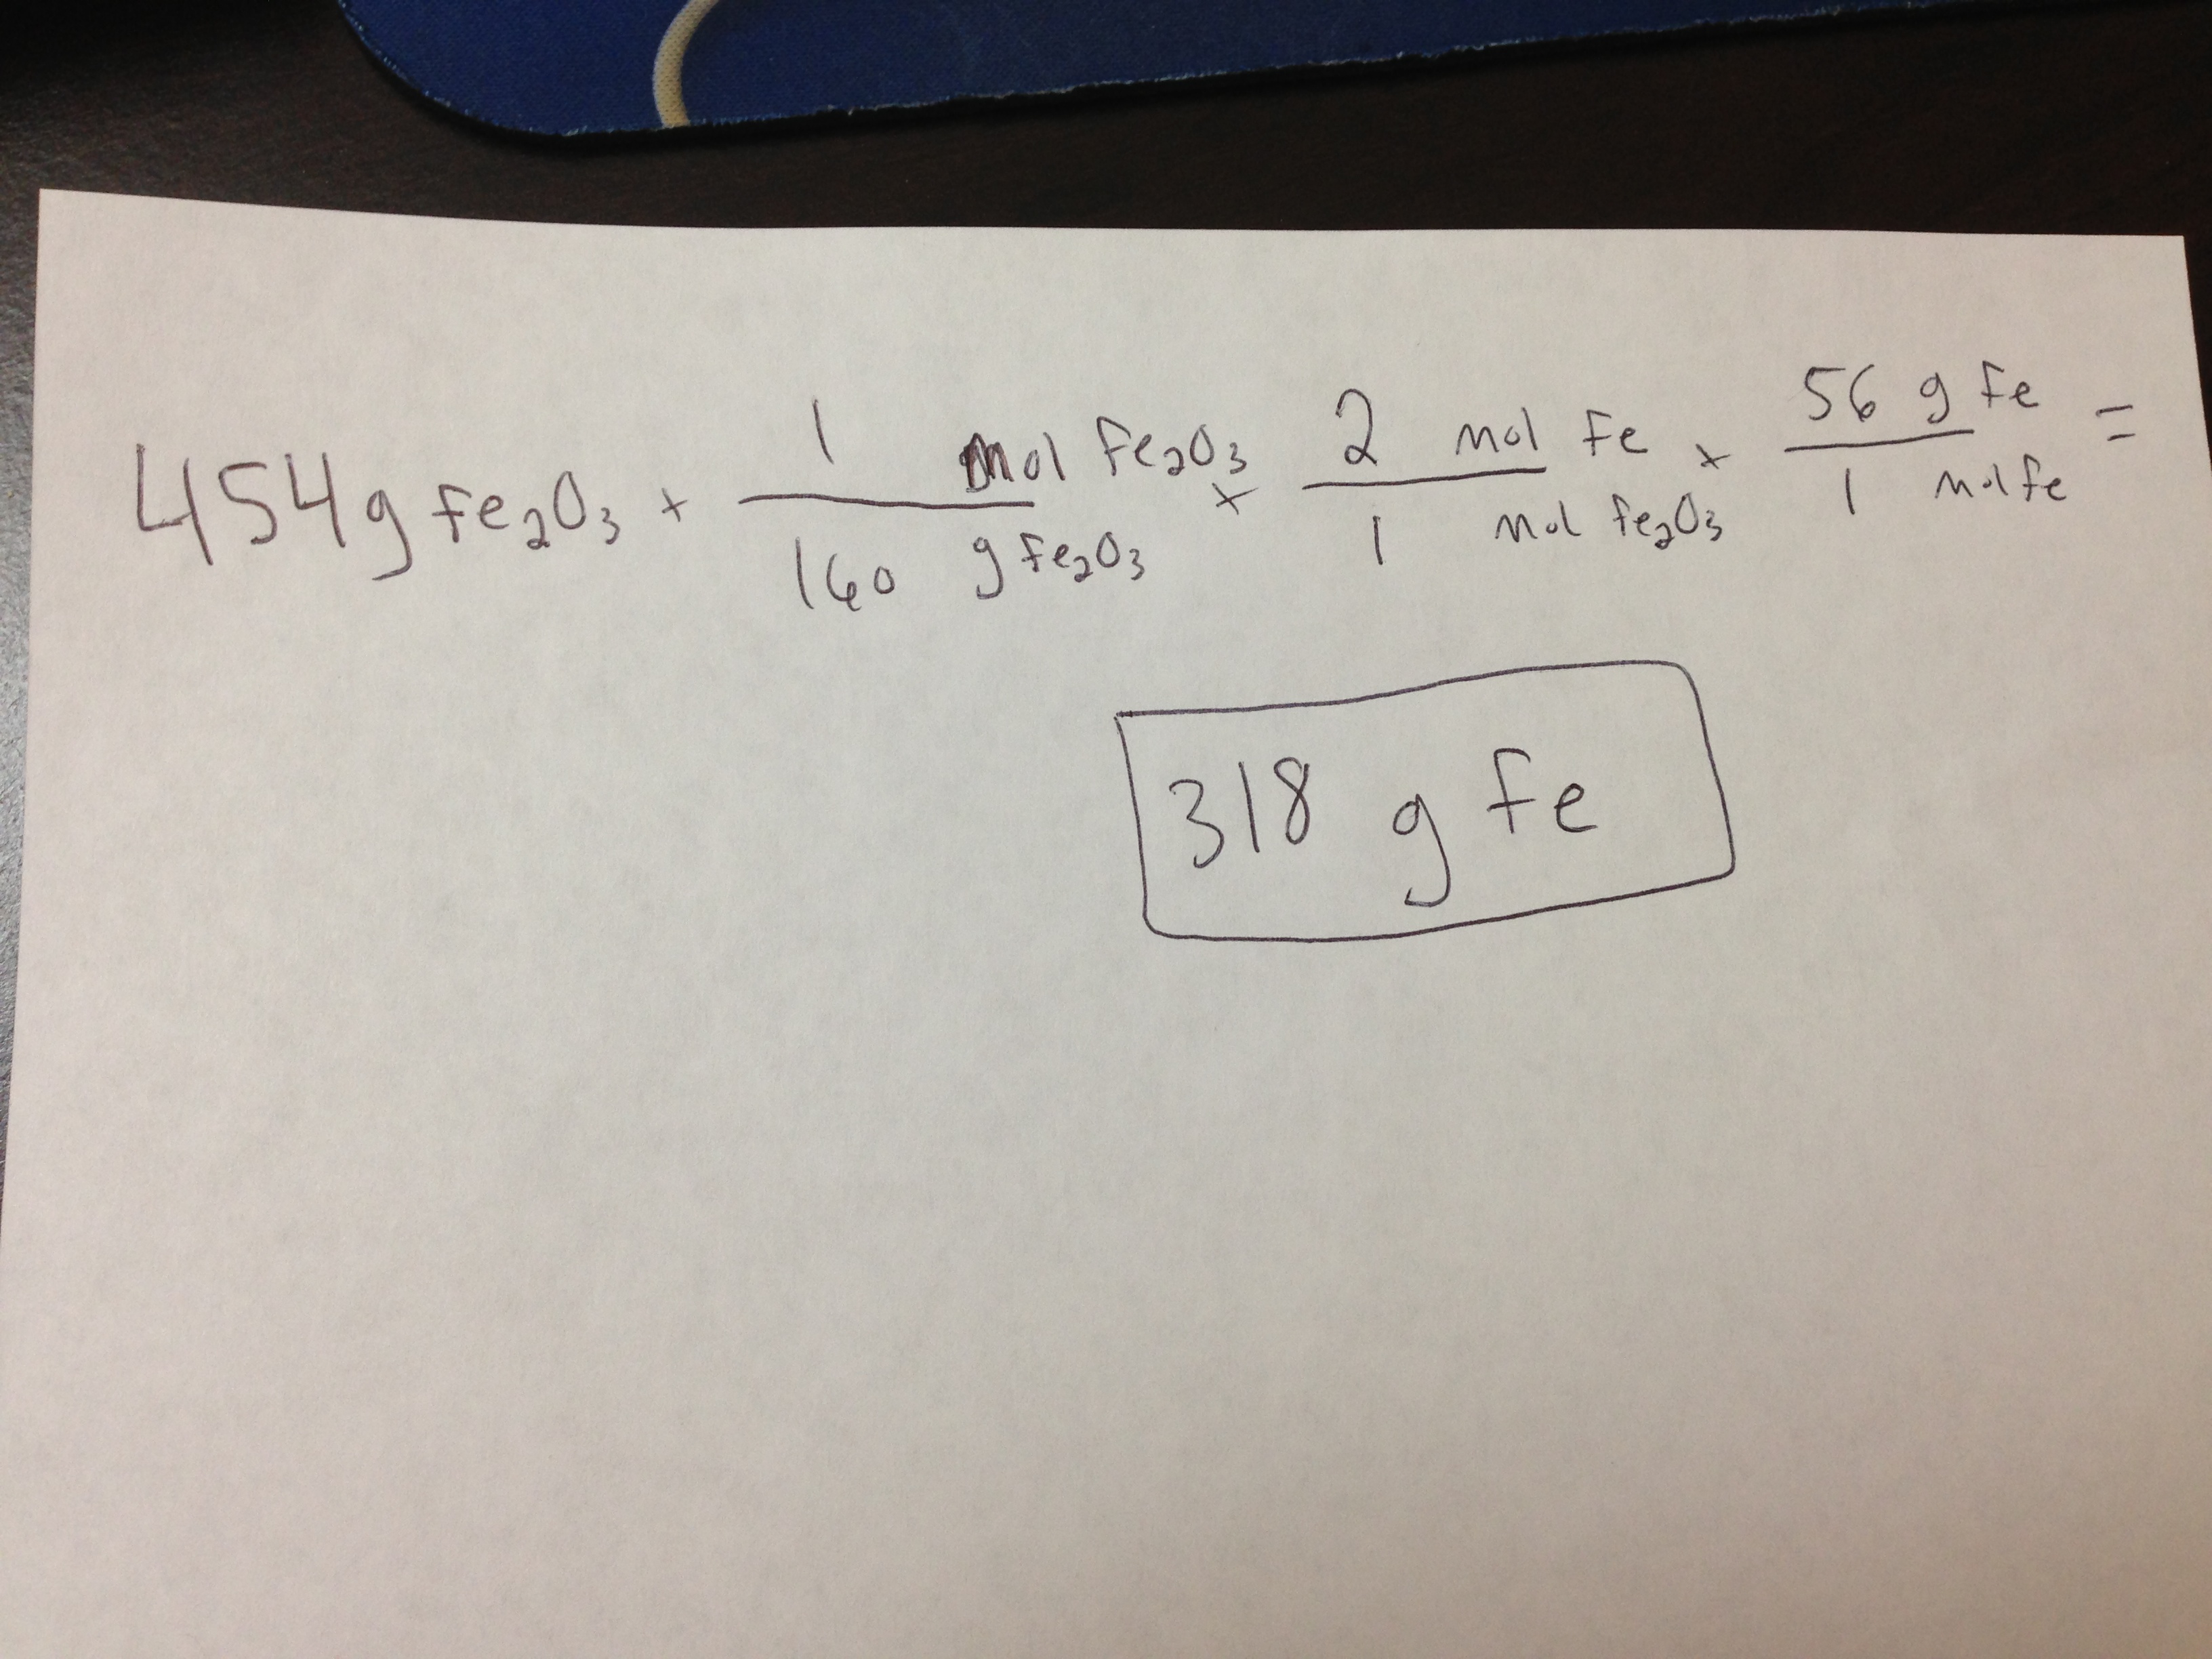 454g Fe₂O₃ × 1 mol Fe₂O₃ / 160 g Fe₂O₃ × 2 mol Fe / 1 mol Fe₂O₃ × 56 g Fe / 1 mol Fe =
318 g Fe